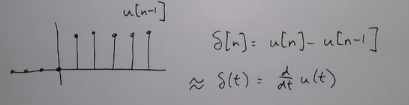 u[n-1]
δ[n] = u[n] - u[n-1]
≈ δ(t) = d/dt u(t)